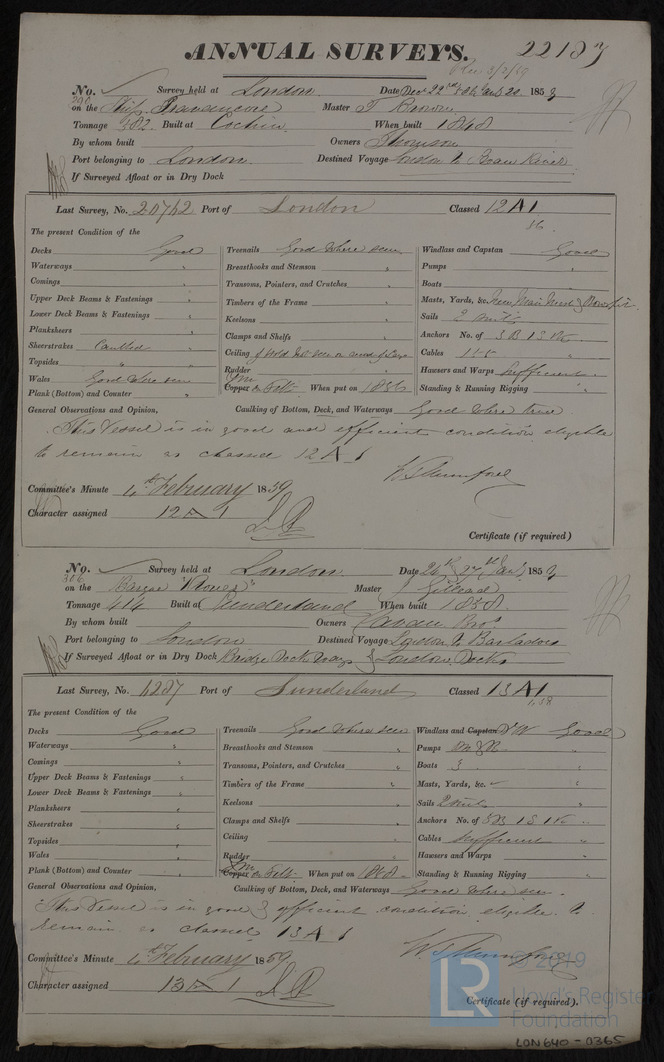 ANNUAL SURVEYS. 22187
No. Survey held at London Date Dec 22nd 1858
on the Ship Travancore Master T Brown
Tonnage 382 Built at Cochin When built 1848
By whom built Owners Thomson
Port belonging to London Destined Voyage London to
If Surveyed Afloat or in Dry Dock
Last Survey, No. 20742 Port of London Classed 12 A 1
56
The present Condition of the
Decks Good Treenails Good where seen Windlass and Capstan Good
Waterways Breasthooks and Stemson Pumps
Comings Transoms, Pointers, and Crutches Boats
Upper Deck Beams & Fastenings Timbers of the Frame Masts, Yards, &c. New Main Mast & Bowsprit
Lower Deck Beams & Fastenings Keelsons Sails 2 suits
Planksheers Anchors No. of 3B 1S 1K
Sheerstrakes Caulked Clamps and Shelfs Cables
Topsides Ceiling of Hold not seen on account of Cargo Hawsers and Warps Sufficient
Wales Good where seen Rudder Standing & Running Rigging
Plank (Bottom) and Counter Copper on Felt When put on 1856
General Observations and Opinion, Caulking of Bottom, Deck, and Waterways Good where seen
This Vessel is in good and efficient condition eligible
to remain as classed 12 A 1
Committee's Minute 4th February 1859
Character assigned 12 A 1
Certificate (if required)
No. Survey held at London Date 26th & 27th Jany 185
306
on the Barque Master J Gilhead
Tonnage 414 Built at Sunderland When built 1858
By whom built Owners Bros
Port belonging to London Destined Voyage London to Barbadoes
If Surveyed Afloat or in Dry Dock Bridge Dock & London Docks
Last Survey, No. 1237 Port of Sunderland Classed 13 A 1
1,58
The present Condition of the
Decks Good Treenails Good where seen Windlass and Capstan Good
Waterways Breasthooks and Stemson Pumps
Comings Transoms, Pointers, and Crutches Boats 3
Upper Deck Beams & Fastenings Timbers of the Frame Masts, Yards, &c.
Lower Deck Beams & Fastenings Keelsons Sails 2 suits
Planksheers Clamps and Shelfs Anchors No. of 3B 1S 1K
Sheerstrakes Ceiling Cables sufficient
Topsides Rudder Hawsers and Warps
Wales Copper on Felt When put on 1858 Standing & Running Rigging
Plank (Bottom) and Counter
General Observations and Opinion, Caulking of Bottom, Deck, and Waterways Good where seen
This Vessel is in good & efficient condition eligible to
remain as classed 13 A 1
Committee's Minute 4th February 1859
Character assigned 13 A 1
Certificate (if required).
© 2019
Lloyd's Register
Foundation
LR
LON640-0365